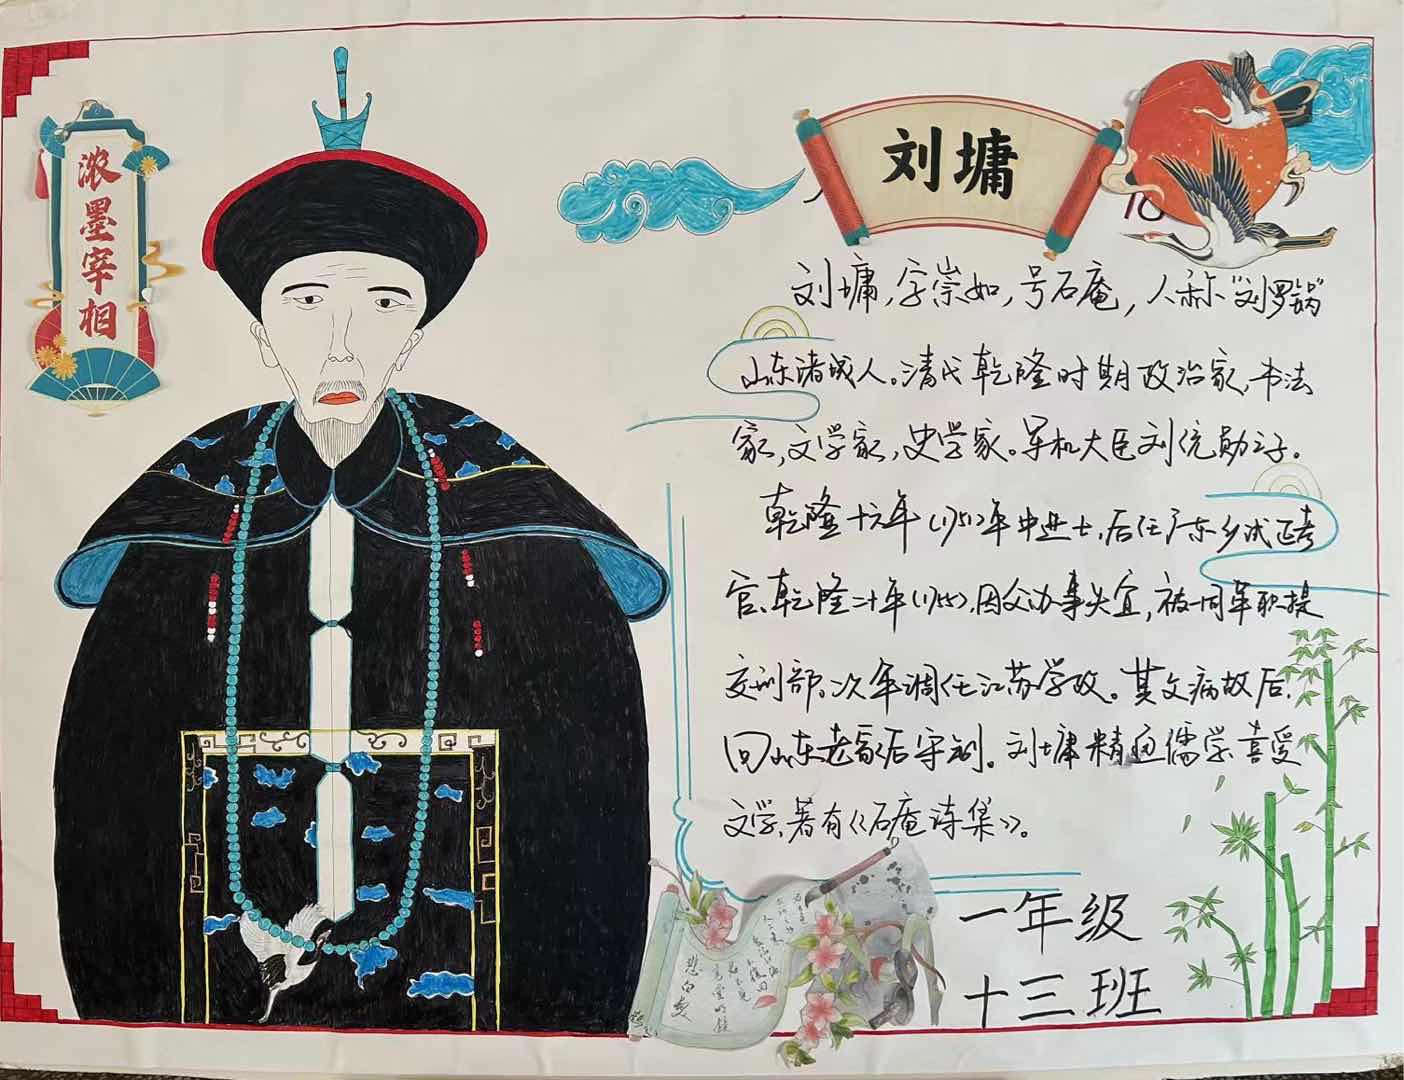 浓墨宰相
刘墉
刘墉，字崇如，号石庵，人称“刘罗锅”
山东诸城人。清代乾隆时期政治家、书法
家，文学家，史学家。军机大臣刘统勋之子。
乾隆十六年(1751)年中进士，后任广东乡试正考
官、乾隆二十年(1755)，因父办事失宜，被一同革职提
交刑部、次年调任江苏学政。其父病故后，
回山东老家后守制。刘墉精通儒学喜爱
文学，著有《石庵诗集》。
一年级
十三班
悲白发
高堂明镜